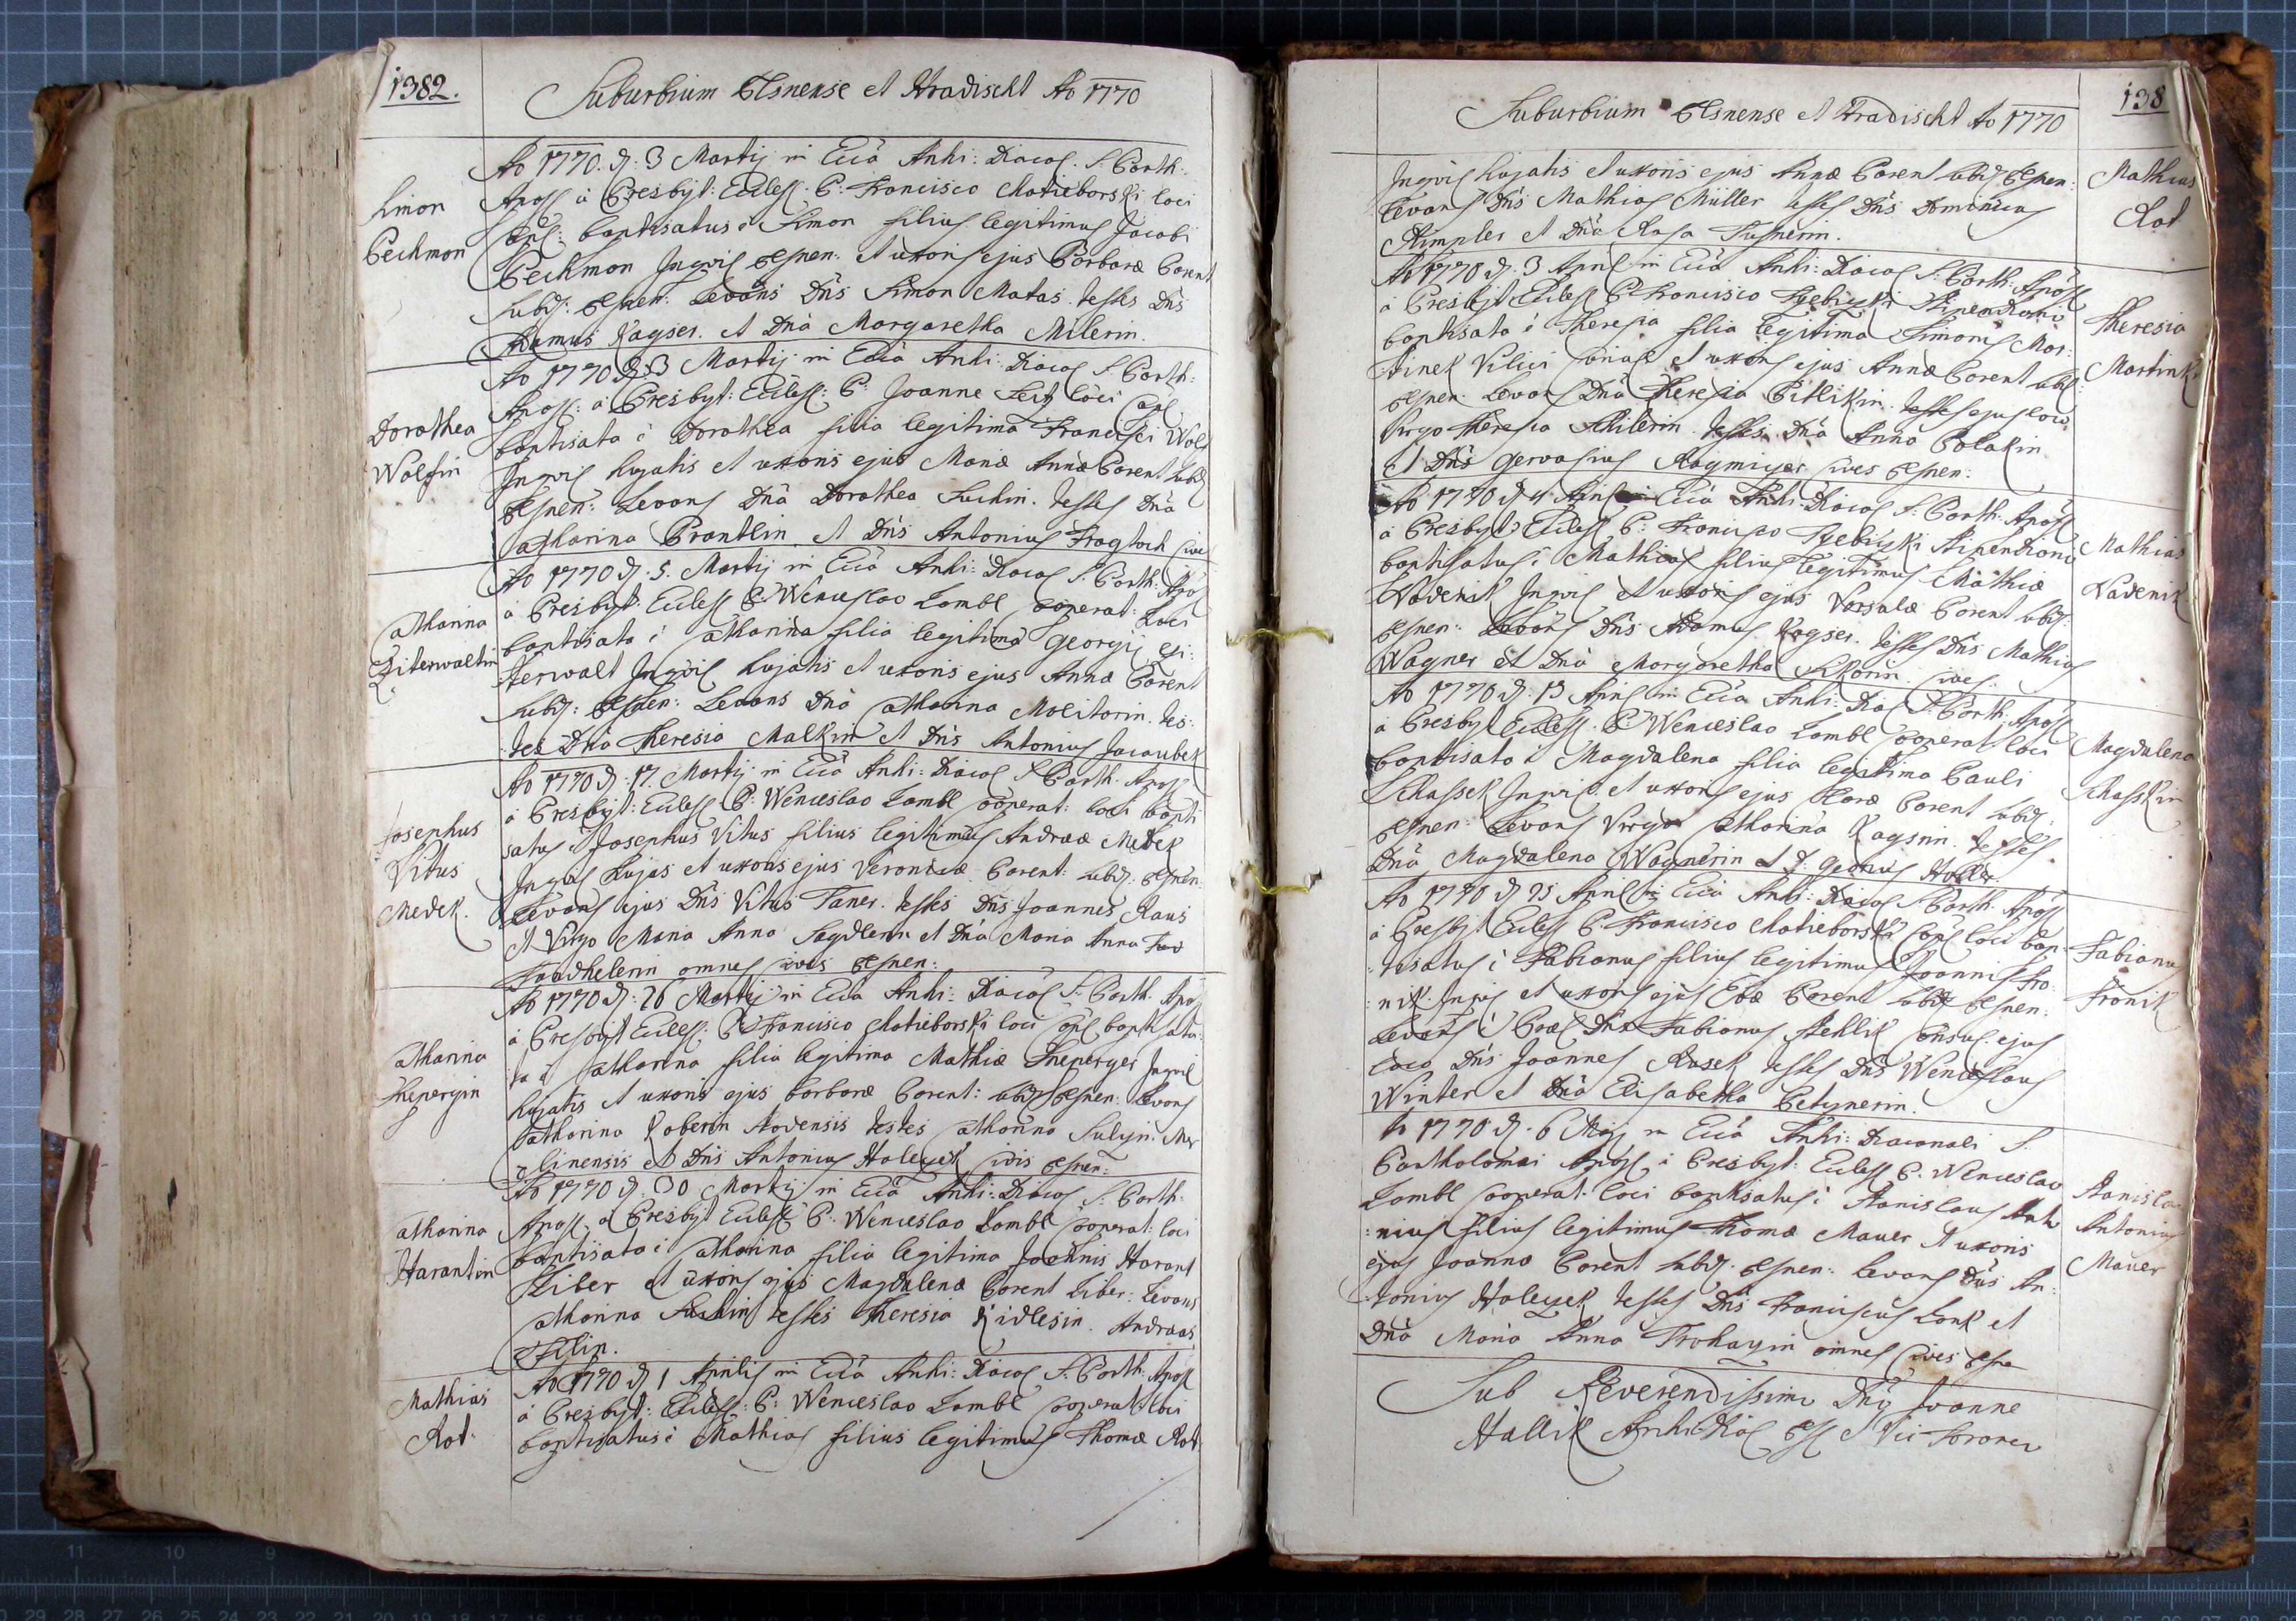 1382.
Suburbium Plsnense et Hradischt Ao 1770
Simon
Pechman
Ao 1770. d. 3 Martij in Ecia Archi: Diacol S. Barth:
Aposs à Presbyt: Eccless. P. Francisco Ratieborski loci
Capl: baptisatus ē Simon filius legitimus Jacobi
Pechman Inqvil Plsnen: et uxoris ejus Barbaræ Parent
subd: Plsnen: Levans Dn̄s Simon Matas. testes Dn̄s
Adamus Kayser. et Dn̄a Margaretha Milerin.
Dorothea
Wolfin
Ao 1770 d. 3 Martij in Ecia Archi: Diacol S. Barth:
Aposs: à Presbyt: Eccless: P: Joanne Seitz loci Capl
baptisata ē Dorothea filia legitima Francisci Wolf
Inqvil hujatis et uxoris ejus Mariæ Annæ Parent subd
Plsnen: Levans Dn̄a Dorothea Suchin. testes Dn̄a
Catharina Brantlin et Dn̄s Antonius
Catharina
Ziterwaltin
Ao 1770 d. 5. Martij in Ecia Archi: Diacol S. Barth: Apos
à Presbyt: Eccless P: Wenceslao Lambl Cooperat: Loci
baptisata ē Catharina filia legitima Georgij Zi:
:terwalt Inqvil hujatis et uxoris ejus Annæ Parent
subd: Plsnen: Levans Dn̄a Catharina Molitorin. tes:
:tes Dn̄a Theresia Malkin et Dn̄s Antonius Jacaubek
Josephus
Vitus
Medek.
Ao 1770 d. 17. Martij in Ecia Archi: Diacol S. Barth. Aposs
à Presbyt: Eccless P: Wenceslao Lambl Cooperat: loci bapti
satus Josephus Vitus filius legitimus Andreæ Medek
Inqvil hujas et uxoris ejus Veronicæ Parent: subd: Plsnen:
Levans ejus Dn̄s Vitus Taner. testes Dn̄s Joannes Raus
et Virgo Maria Anna et Dn̄a Maria Anna
omnes Cives Plsnen:
Catharina
Ao 1770 d: 26 Martij in Ecia Archi: Diacol S. Barth. Apos
à Presbyt Eccless. P. Francisco Ratieborski loci Capl baptisata
Catharina filia legitima Mathiæ Inqvil
hujatis et uxoris ejus barbaræ Parent: subd Plsnen: Levans
Catharina Koberin testes Catharina
linensis et Dn̄s Antonius Haleyek Civis Plsnen:
Catharina
Harantin
Ao 1770 d. 30 Martij in Ecia Archi: Diacol S. Barth:
Aposs à Presbyt Eccless P: Wenceslao Lambl Cooperat: loci
baptisata ē Catharina filia legitima Joannis Harant
Liber et uxoris ejus Magdalenæ Parent Liber: Levans
Catharina Suchin testes Theresia Kidlesin. Andreas
Filip.
Mathias
Rot.
Ao 1770 d 1 Aprilis in Ecia Archi: Diacol S. Barth: Aposs
à Presbyt: Eccless: P: Wenceslao Lambl Cooperat: loci
baptisatus ē Mathias filius legitimus Thomæ Rot
138
Suburbium Plsnense et Hradischt Ao 1770
Mathias
Rot
Inqvil hujatis et uxoris ejus Annæ Parent subd Plsnen:
Levans Dn̄s Mathias Müller testes Dn̄s Dominicus
Rimpler et Dn̄a Rosa
Theresia
Martink
Ao 1770 d. 3 April in Ecia Archi: Diacol S. Barth: Aposs
à Presbyt Eccless P. Francisco
baptisata ē Theresia filia legitima Simonis Mar:
:tinek Vilici et uxoris ejus Annæ Parent subd:
Plsnen. Levans Dn̄a Theresia Pitlikin. ejus loco
Virgo Theresia testes Dn̄a Anna Polakin
et Dn̄s Gervasius Cives Plsnen:
Mathias
Kadenik
Ao 1770 d 4 April Ecia Archi: Diacol S. Barth: Aposs
à Presbyt Eccless P. Francisco
baptisatus ē Mathias filius legitimus Mathiæ
Kadenik Inqvil et uxoris ejus Parent subd:
Plsnen: Levans Dn̄s Adamus Kayser. testes Dn̄s Mathias
Wagner et Dn̄a Margaretha Cives.
Magdalena
Ao 1770 d. 13 April in Ecia Archi: Diac S. Barth: Aposs
à Presbyt Eccless. P: Wenceslao Lambl Cooperat loci
baptisata ē Magdalena filia legitima Pauli
Inqvil et uxoris ejus Parent subd:
Plsnen: Levans Virgo Catharina testes
Dn̄a Magdalena Wagnerin et D: Georius
Fabianus
Fronik
Ao 1770 d 25 April in Ecia Archi: Diacol S Barth. Aposs
à Presbyt Eccless P. Francisco Ratieborski Capl loci bap:
:tisatus ē Fabianus filius legitimus Joannis Fro:
:nik Inqvil et uxoris ejus Evæ Parent subd Plsnen:
Levans Dn̄s Fabianus Stehlik ejus
loco Dn̄s Joannes Rusek testes Dn̄s Wenceslaus
Winter et Dn̄a Elisabetha
Stanislaus
Antonius
Mauer
Ao 1770 d. 6 Maij in Ecia Archi: Diaconali S.
Bartholomæi Aposs à Presbyt: Eccless P. Wenceslao
Lambl Cooperat: loci baptisatus ē Stanislaus Anto
:nius filius legitimus Thomæ Mauer et uxoris
ejus Joannæ Parent subd. Plsnen: Levans Dn̄s An:
:tonius Haleyek testes Dn̄s Franciscus et
Dn̄a Maria Anna omnes Cives Plsne
Sub Reverendissimo Dn̄o Joanne
Hallik Archi-Diac